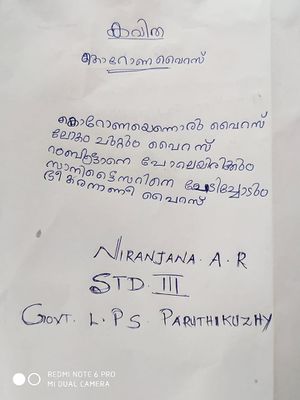 കവിത
കൊറോണ വൈറസ്
കൊറോണയെന്നൊരു വൈറസ്
ലോകം ചുറ്റും വൈറസ്
റമ്പൂട്ടാനെ പോലെയിരിക്കും
സാനിട്ടൈസറിനെ പേടിച്ചോടും
ഭീകരനാണീ വൈറസ്
NIRANJANA. A. R
STD. III
GOVT. L. P S. PARUTHIKUZHY
REDMI NOTE 6 PRO
MI DUAL CAMERA